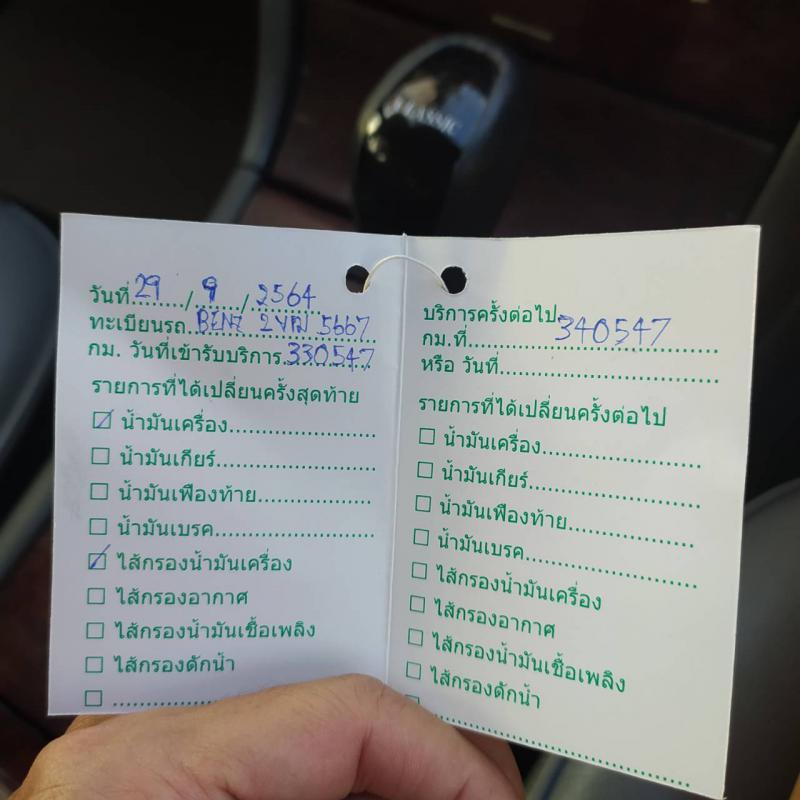 CLASSIC
วันที่ 29 / 9 / 2564
ทะเบียนรถ BENZ 5667
กม. วันที่เข้ารับบริการ 330547
รายการที่ได้เปลี่ยนครั้งสุดท้าย
น้ำมันเครื่อง
น้ำมันเกียร์
น้ำมันเฟืองท้าย
น้ำมันเบรค
ไส้กรองน้ำมันเครื่อง
ไส้กรองอากาศ
ไส้กรองน้ำมันเชื้อเพลิง
ไส้กรองดักน้ำ
บริการครั้งต่อไป
กม.ที่ 340547
หรือ วันที่
รายการที่ได้เปลี่ยนครั้งต่อไป
น้ำมันเครื่อง
น้ำมันเกียร์
น้ำมันเฟืองท้าย
น้ำมันเบรค
ไส้กรองน้ำมันเครื่อง
ไส้กรองอากาศ
ไส้กรองน้ำมันเชื้อเพลิง
ไส้กรองดักน้ำ